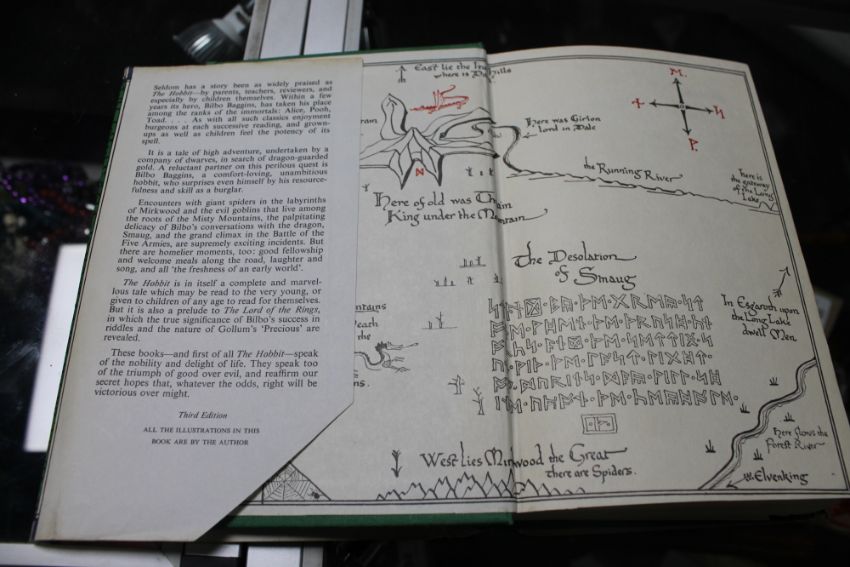 Seldom has a story been as widely praised as
The Hobbit—by parents, teachers, reviewers, and
especially by children themselves. Within a few
years its hero, Bilbo Baggins, has taken his place
among the ranks of the immortals: Alice, Pooh,
Toad. . . . As with all such classics enjoyment
burgeons at each successive reading, and grown-
ups as well as children feel the potency of its
spell.
It is a tale of high adventure, undertaken by a
company of dwarves, in search of dragon-guarded
gold. A reluctant partner on this perilous quest is
Bilbo Baggins, a comfort-loving, unambitious
hobbit, who surprises even himself by his resource-
fulness and skill as a burglar.
Encounters with giant spiders in the labyrinths
of Mirkwood and the evil goblins that live among
the roots of the Misty Mountains, the palpitating
delicacy of Bilbo's conversations with the dragon,
Smaug, and the grand climax in the Battle of the
Five Armies, are supremely exciting incidents. But
there are homelier moments, too: good fellowship
and welcome meals along the road, laughter and
song, and all 'the freshness of an early world'.
The Hobbit is in itself a complete and marvel-
lous tale which may be read to the very young, or
given to children of any age to read for themselves.
But it is also a prelude to The Lord of the Rings,
in which the true significance of Bilbo's success in
riddles and the nature of Gollum's 'Precious' are
revealed.
These books—and first of all The Hobbit—speak
of the nobility and delight of life. They speak too
of the triumph of good over evil, and reaffirm our
secret hopes that, whatever the odds, right will be
victorious over might.
Third Edition
ALL THE ILLUSTRATIONS IN THIS
BOOK ARE BY THE AUTHOR
East lie the
here is
Here of old was
King under the
Here was Girion
Lord in Dale
the Running River
here is
the gateway
of the Long
Lake
The Desolation
of Smaug
In Esgaroth upon
the Long Lake
dwell Men
West lies Mirkwood the Great
there are Spiders.
Here flows the
Forest River
Elvenking